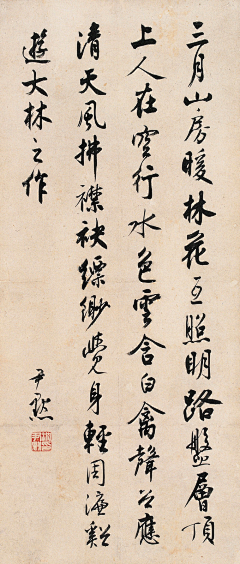 三月山房暖林花互照明路盤層頂
上人在空行水色雲含白禽聲谷應
清天風拂襟袂縹緲覺身輕周濂谿
遊大林之作
尹默